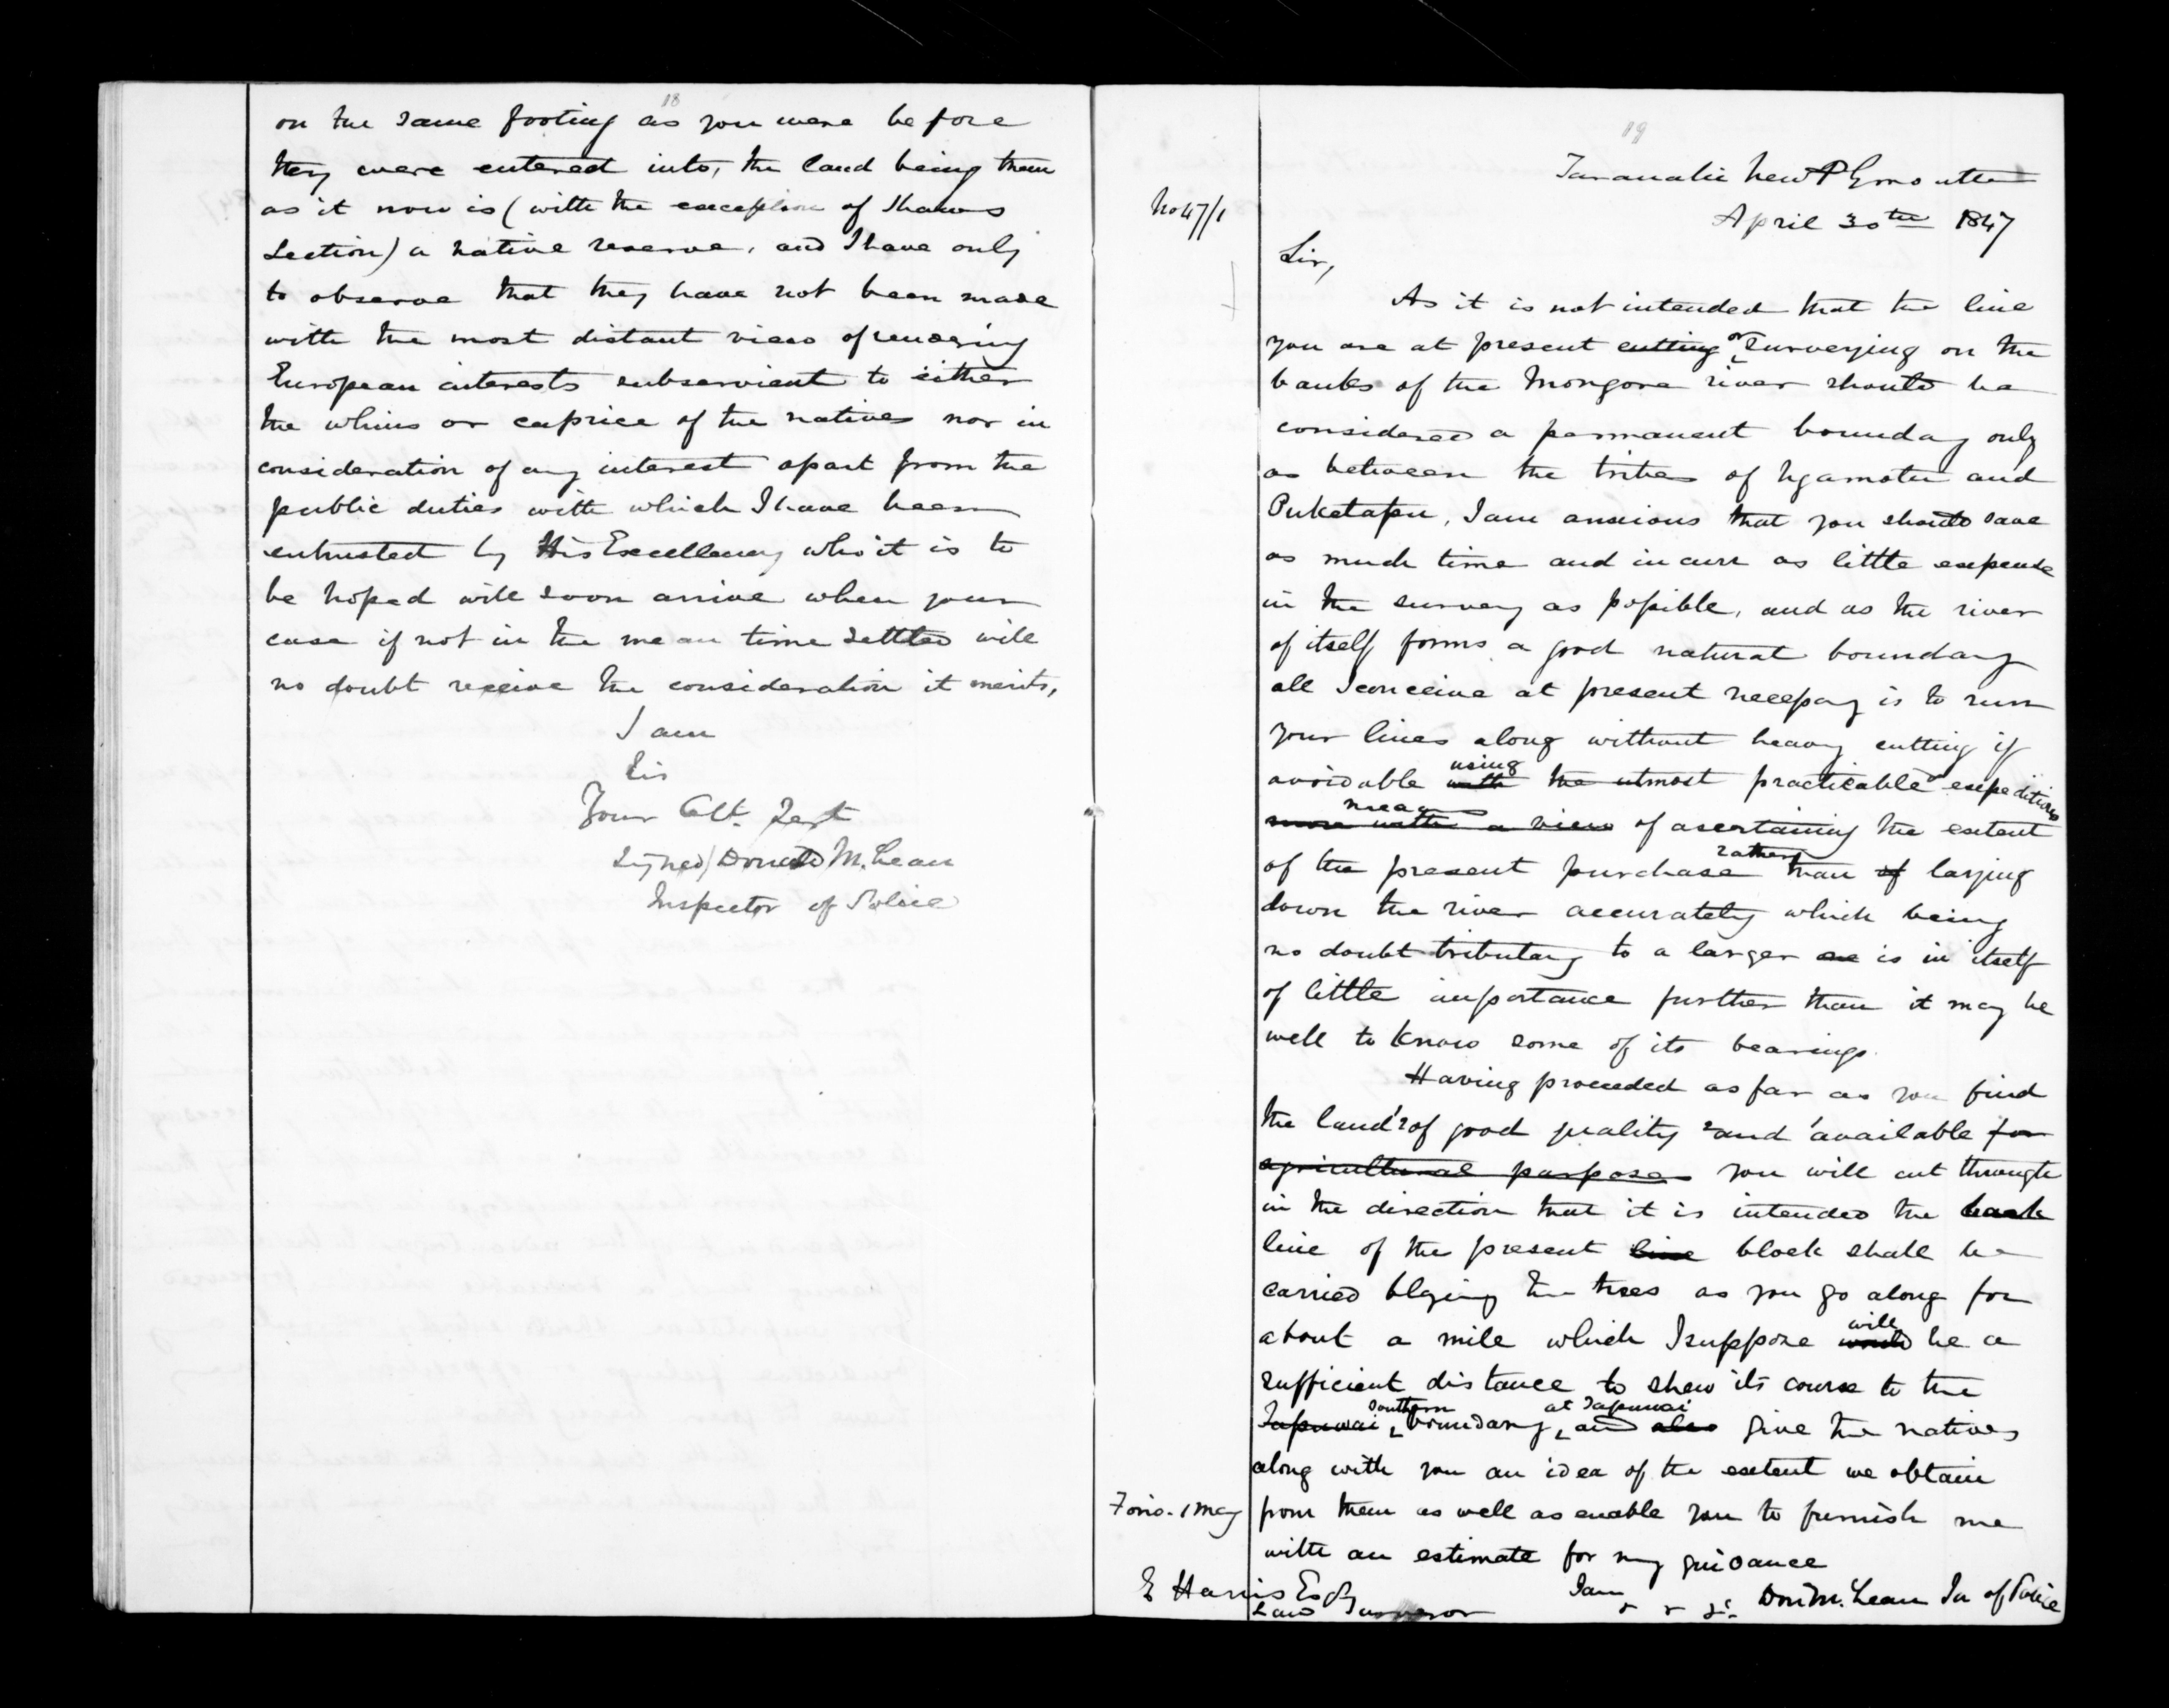 18
on the same footing as you were before
they were entered into, the land being then
as it now is (with the exception of Shaws
Section) a native reserve, and I have only
to observe that they have not been made
with the most distant view of rendering
European interests subservient to either
the whims or caprice of the natives nor in
consideration of any interest apart from the
public duties with which I have been
entrusted by His Excellency who it is to
be hoped will soon arrive when your
case if not in the mean time settled will
no doubt receive the consideration it merits,
I am
Sir
Your Obt. Sert
Signed/ Donald McLean
Inspector of Police
19
Taranaki New Plymouth
No 47/1
April 30th 1847
Sir,
As it is not intended that the line
you are at present cutting or surveying on the
banks of the Mongora river should be
considered a permanent bounday only
as between the tribes of Ngamotu and
Puketapu, I am anxious that you should save
as much time and incurr as little expense
in the survey as possible, and as the river
of itself forms a good natural boundary
all I conceive at present necessary is to run
your lines along without heavy cutting if
avoidable with using the utmost practicable expedition
more with a view means of ascertaining the extent
of the present purchase rather than of laying
down the river accurately which being
no doubt tributary to a larger one is in itself
of little importance further than it may be
well to know some of its bearings.
Having proceeded as far as you find
the land of good quality and available for
agricultural purposes you will cut through
in the direction that it is intended the back
line of the present line block shall be
carried blazing the trees as you go along for
about a mile which I suppose would will be a
sufficient distance to shew its course to the
Tapuwai southern boundary, at Tapuwai and also give the natives
along with you an idea of the extent we obtain
from them as well as enable you to furnish me
with an estimate for my guidance
1 May
E Harris Esqr
Land Surveyor
I am
& & &c Don McLean In of Police